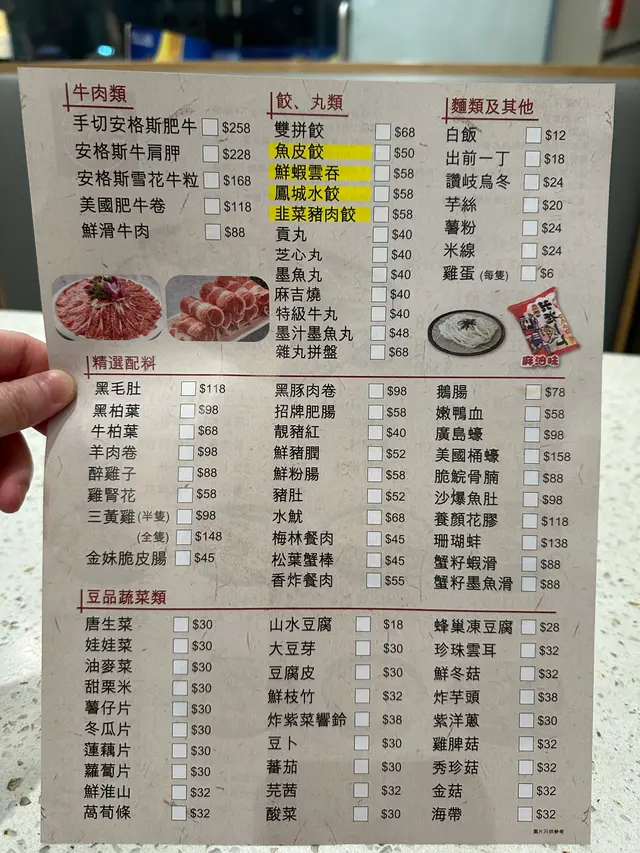 牛肉類
手切安格斯肥牛 $258
安格斯牛肩胛 $228
安格斯雪花牛粒 $168
美國肥牛卷 $118
鮮滑牛肉 $88
餃、丸類
雙拼餃 $68
魚皮餃 $50
鮮蝦雲吞 $58
鳳城水餃 $58
韭菜豬肉餃 $58
貢丸 $40
芝心丸 $40
墨魚丸 $40
麻吉燒 $40
特級牛丸 $40
墨汁墨魚丸 $48
雜丸拼盤 $68
麵類及其他
白飯 $12
出前一丁 $18
讚岐烏冬 $24
芋絲 $20
薯粉 $24
米線 $24
雞蛋 (每隻) $6
麻油味
精選配料
黑毛肚 $118
黑柏葉 $98
牛柏葉 $68
羊肉卷 $98
醉雞子 $88
雞腎花 $58
三黃雞 (半隻) $98
(全隻) $148
金妹脆皮腸 $45
黑豚肉卷 $98
招牌肥腸 $58
靚豬紅 $40
鮮豬膶 $52
鮮粉腸 $58
豬肚 $52
水魷 $68
梅林餐肉 $45
松葉蟹棒 $45
香炸餐肉 $55
鵝腸 $78
嫩鴨血 $58
廣島蠔 $98
美國桶蠔 $158
脆鯇骨腩 $88
沙爆魚肚 $98
養顏花膠 $118
珊瑚蚌 $138
蟹籽蝦滑 $88
蟹籽墨魚滑 $88
豆品蔬菜類
唐生菜 $30
娃娃菜 $30
油麥菜 $30
甜栗米 $30
薯仔片 $30
冬瓜片 $30
蓮藕片 $30
蘿蔔片 $30
鮮淮山 $32
萵荀條 $32
山水豆腐 $18
大豆芽 $30
豆腐皮 $30
鮮枝竹 $32
炸紫菜響鈴 $38
豆卜 $30
蕃茄 $30
芫茜 $32
酸菜 $30
蜂巢凍豆腐 $28
珍珠雲耳 $32
鮮冬菇 $32
炸芋頭 $38
紫洋蔥 $30
雞脾菇 $32
秀珍菇 $32
金菇 $32
海帶 $32
圖片只供參考